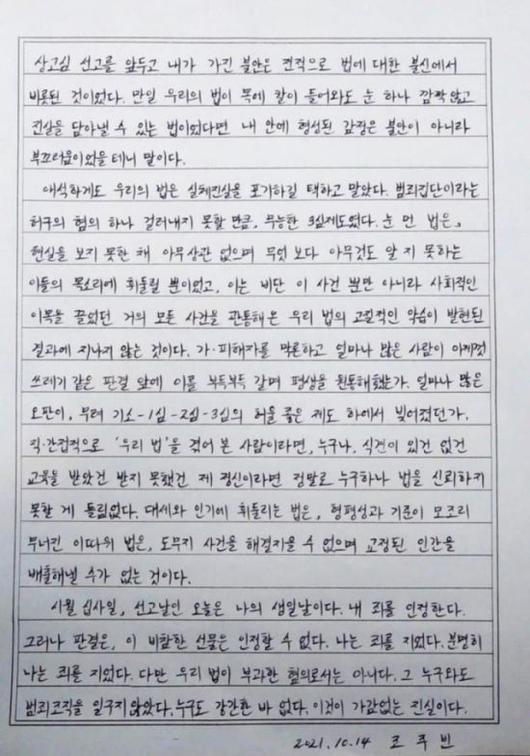 상고심 선고를 앞두고 내가 가진 불안은 전적으로 법에 대한 불신에서
비롯된 것이었다. 만일 우리의 법이 목에 칼이 들어와도 눈 하나 깜짝 않고
진실을 담아낼 수 있는 법이었다면 내 안에 형성된 감정은 불안이 아니라
부끄러움이었을 테니 말이다.
애석하게도 우리의 법은 실체진실을 포기하길 택하고 말았다. 범죄집단이라는
허구의 혐의 하나 걸러내지 못할 만큼, 무능한 3심제도였다. 눈 먼 법은,
현실을 보지 못한 채 아무상관 없으며 무엇 보다 아무것도 알 지 못하는
이들의 목소리에 휘둘릴 뿐이었고, 이는 비단 이 사건 뿐만 아니라 사회적인
이목을 끌었던 거의 모든 사건을 관통해온 우리 법의 고질적인 악습이 발현된
결과에 지나지 않는 것이다. 가·피해자를 막론하고 얼마나 많은 사람이 이제껏
쓰레기 같은 판결 앞에 이를 부득부득 갈며 평생을 원통해했는가. 얼마나 많은
오판이, 무려 기소-1심-2심-3심의 허울 좋은 제도 하에서 빚어졌던가.
직·간접적으로 '우리 법'을 겪어 본 사람이라면, 누구나, 식견이 있건 없건
교육을 받았건 받지 못했건 제 정신이라면 정말로 누구하나 법을 신뢰하지
못할 게 틀림없다. 대세와 인기에 휘둘리는 법은, 형평성과 기준이 모조리
무너진 이따위 법은, 도무지 사건을 해결지을 수 없으며 교정된 인간을
배출해낼 수가 없는 것이다.
시월 십사일, 선고날인 오늘은 나의 생일날이다. 내 죄를 인정한다.
그러나 판결은, 이 비참한 선물은 인정할 수 없다. 나는 죄를 지었다. 분명히
나는 죄를 지었다. 다만 우리 법이 부과한 혐의로서는 아니다. 그 누구와도
범죄조직을 일구지 않았다. 누구도 강간한 바 없다. 이것이 가감없는 진실이다.
2021. 10. 14 조주빈